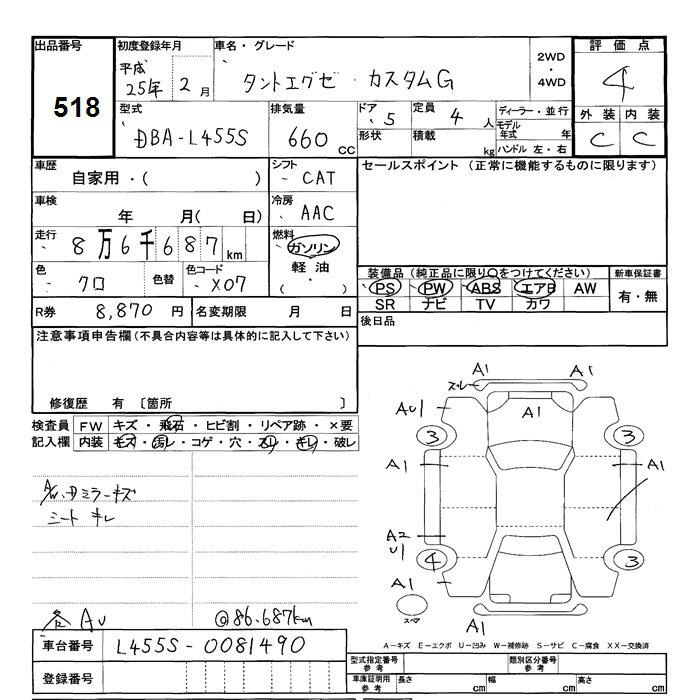 出品番号 初度登録年月 車名・グレード 評価点
518
平成25年 2月 タントエグゼ・カスタムG 2WD・4WD 4
型式 排気量 ドア 定員 ディーラー・並行 外装 内装
DBA-L455S 660cc 5 4人 モデル年式 年 C C
形状 積載 kg ハンドル 左・右
車歴 シフト セールスポイント (正常に機能するものに限ります)
自家用・( ) CAT
車検 冷房
年 月( 日) AAC
走行 燃料
8万6千687km ガソリン
軽油
・( )
色 色替 色コード
クロ X07
装備品 (純正品に限り○をつけてください) 新車保証書
PS PW ABS エアB AW 有・無
SR ナビ TV カワ
R券 8,870円 名変期限 月 日 後日品
注意事項申告欄 (不具合内容等は具体的に記入して下さい)
修復歴 有 〔箇所 〕
検査員 FW キズ・飛石・ヒビ割・リペア跡・×要
記入欄 内装 キズ・汚レ・コゲ・穴・スリ・キレ・破レ
A/W・Dミラーキズ
シート キレ
各 AU @86.687km
A1 A1
スレー
AU1 A1
3 3
A1 A1
A2
U1
4 3
A1
スペア
A1
A-キズ E-エクボ U-凹み W-補修跡 S-サビ C-腐食 XX-交換済
車台番号 L455S-0081490
型式指定番号 参考 類別区分番号 参考
登録番号 車庫証明用・参考 長さ cm 幅 cm 高さ cm